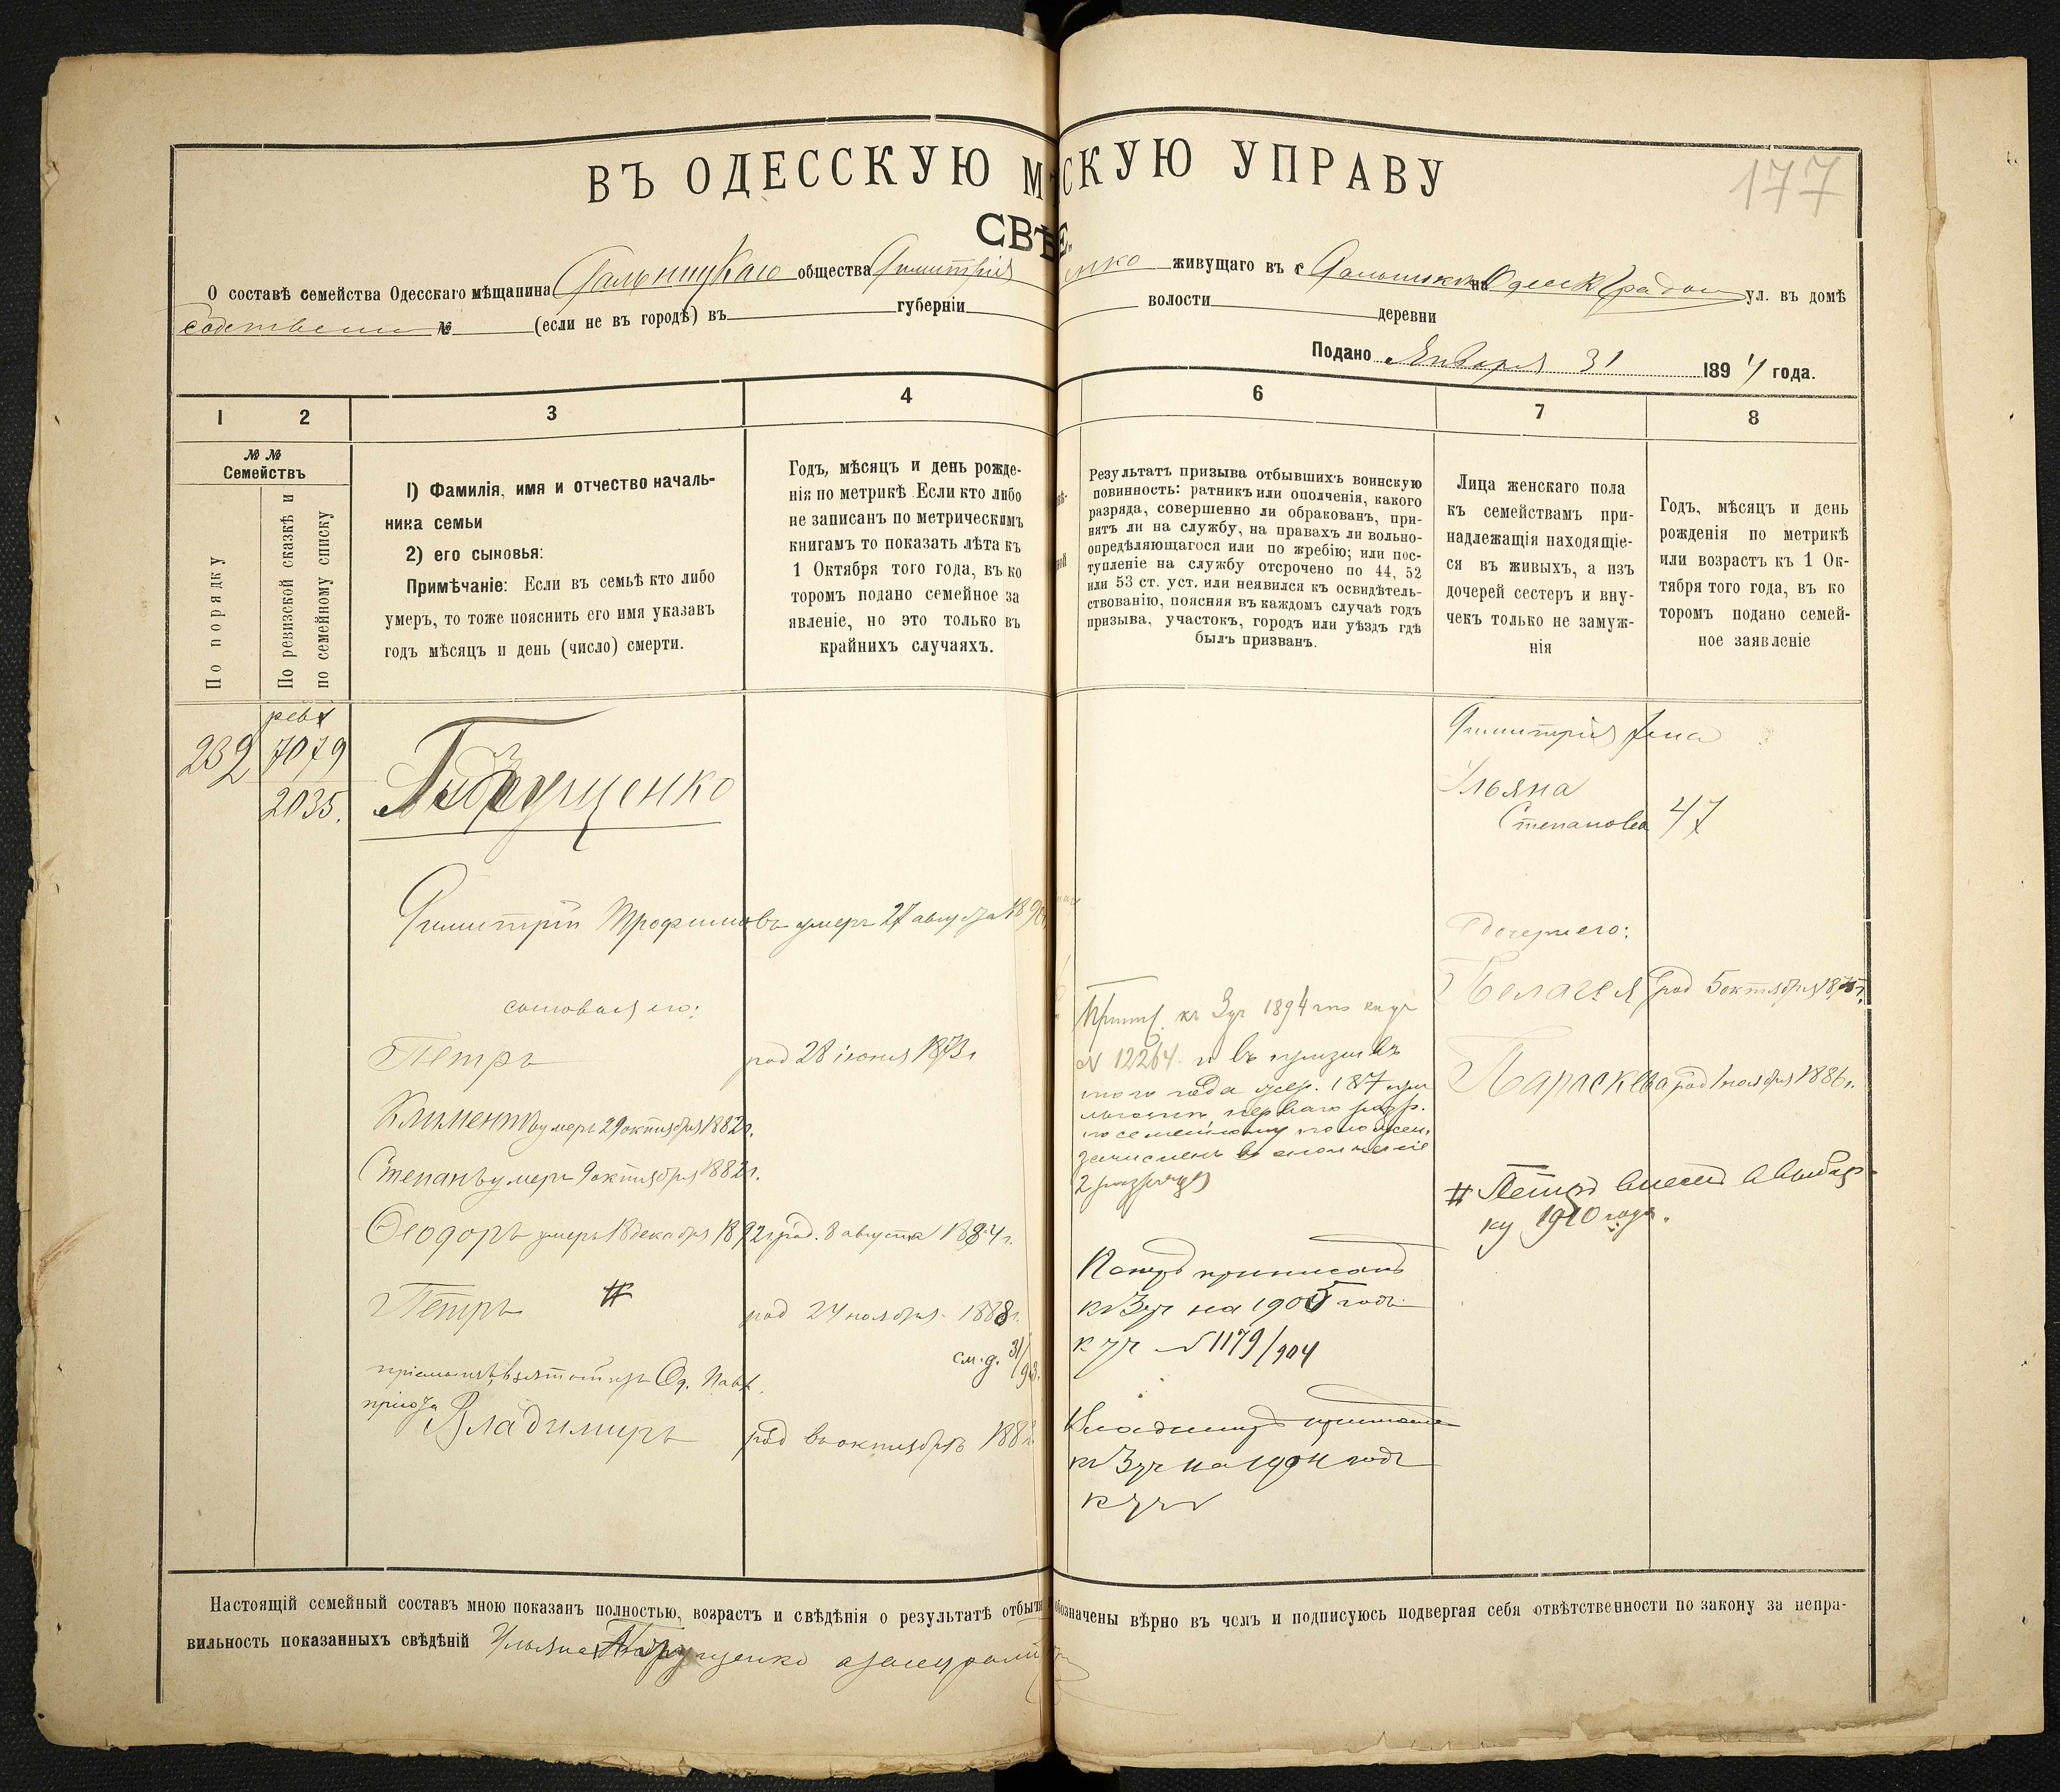 177
ВЪ ОДЕССКУЮ М СКУЮ УПРАВУ
СВѢ
О составѣ семейства Одесскаго мѣщанина Дальницкаго общества Димитрія нко живущаго въ с на ул. въ домѣ
собственн № (если не въ городѣ) въ губерніи волости деревни
Подано Января 31 1894 года.
1 2 3 4 6 7 8
№ №
Семействъ
По порядку
По ревизской сказкѣ и
по семейному списку
1) Фамилія, имя и отчество началь-
ника семьи
2) его сыновья:
Примѣчаніе: Если въ семьѣ кто либо
умеръ, то тоже пояснить его имя указавъ
годъ мѣсяцъ и день (число) смерти.
Годъ, мѣсяцъ и день рожде-
нія по метрикѣ Если кто либо
не записанъ по метрическимъ
книгамъ то показать лѣта къ
1 Октября того года, въ ко
торомъ подано семейное за
явленіе, но это только въ
крайнихъ случаяхъ.
Результатъ призыва отбывшихъ воинскую
повинность: ратникъ или ополченія, какого
разряда, совершенно ли обракованъ, при-
нятъ ли на службу, на правахъ ли вольно-
опредѣляющагося или по жребію; или пос-
тупленіе на службу отсрочено по 44, 52
или 53 ст. уст. или неявился къ освидѣтель-
ствованію, поясняя въ каждомъ случаѣ годъ
призыва, участокъ, городъ или уѣздъ гдѣ
былъ призванъ.
Лица женскаго пола
къ семействамъ при-
надлежащія находящіе-
ся въ живыхъ, а изъ
дочерей сестеръ и вну-
чекъ только не замуж-
нія
Годъ, мѣсяцъ и день
рожденія по метрикѣ
или возрастъ къ 1 Ок-
тября того года, въ ко
торомъ подано семей-
ное заявленіе
232
7079
2035.
Димитрій Трофимовъ умеръ 27 августа
сыновья его:
Петръ род 28 іюня 1873 г
Климентъ умеръ 29 октября 1882 г.
Степанъ умеръ 9 октября 1882 г.
Ѳеодоръ умеръ 18 декабря 1892 г род. 8 августа 1884 г.
Петръ # род 24 ноября 1888 г.
см. д. 31/93.
пріемышъ, взятый изъ Од. Павл.
пріюта
Владимиръ род въ октябрѣ
Припис. къ 3 уч 1894
№ 12264. и въ призывъ
того года жер. 187 при
льготѣ перваго разр.
по семейному положен.
зачисленъ въ ополченіе
2 разряда
Петръ приписанъ
къ 3 уч на 1905 годъ
к уч №1179/904
Владимиръ приписанъ
къ 3 уч на 1904 годъ
к уч №
Димитрія жена
Ульяна
Степановна 47
дочери его:
Пелагея род 5 октября
Параскева род 1 ноября 1886 г.
# Петръ внесенъ в выбор-
ку 1910 года.
Настоящій семейный составъ мною показанъ полностью, возрастъ и свѣдѣнія о результатѣ отбыті обозначены вѣрно въ чемъ и подписуюсь подвергая себя отвѣтственности по закону за непра-
вильность показанныхъ свѣдѣній Ульяна